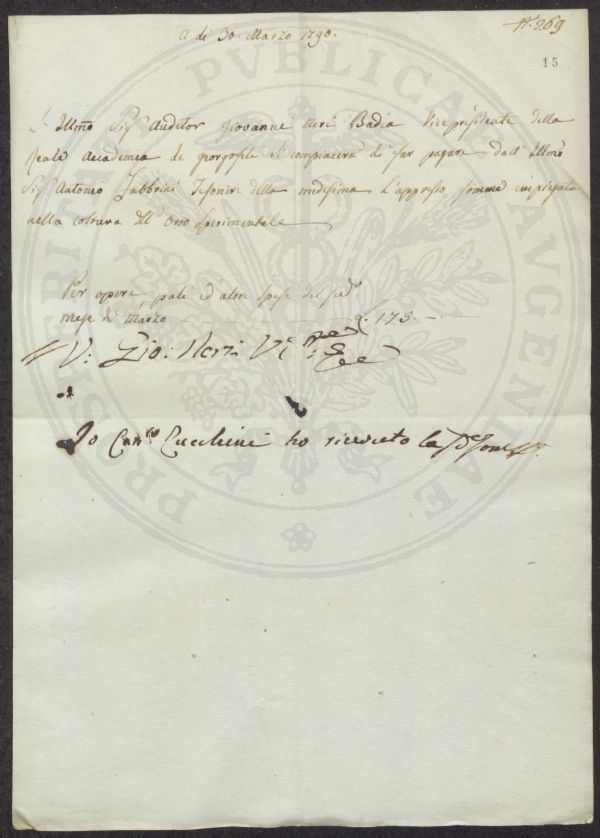 N.° 269
A di 30 Marzo 1790.
15
L'Illmo Sig Auditor Giovanni Neri Badia Vicepresidente della
Reale Accademia de Georgofili si compiacerà di far pagare dall' Illmo
Sig Antonio Fabbrini Tesoriere della medesima l'appresso somma impiegata
nella coltura dell' Orto sperimentale
Per opere, pali ed altre spese del sud.°
mese di Marzo £. 175.
V: Gio: Neri V.e
Io Can.co Zucchini ho ricevuto la
PROSPERITATI PVBLICAE AVGENDAE